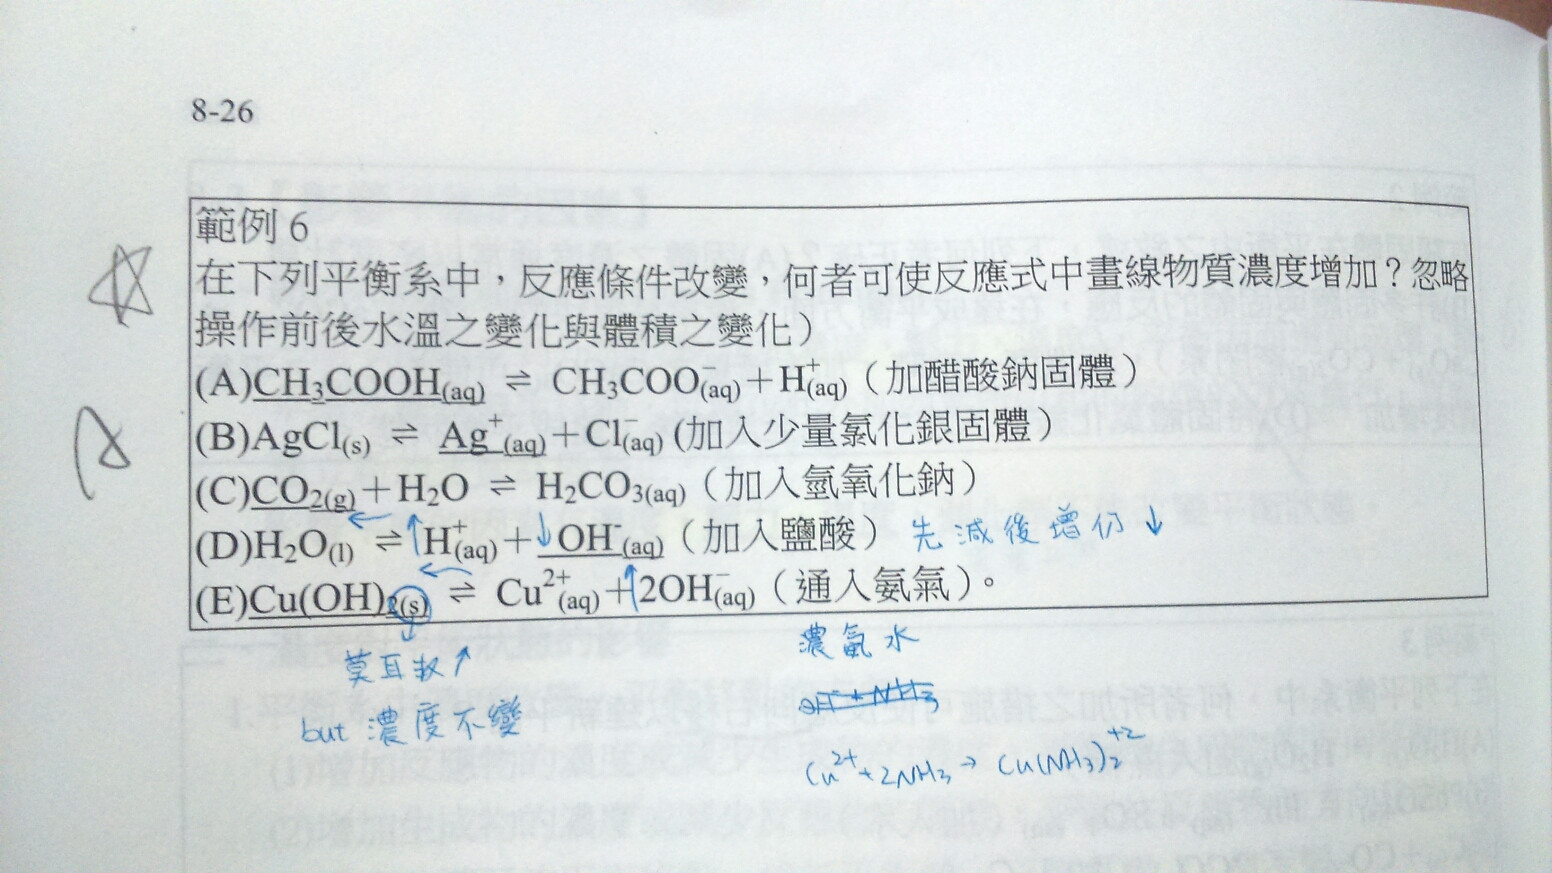 8-26
範例 6
在下列平衡系中，反應條件改變，何者可使反應式中畫線物質濃度增加？忽略
操作前後水溫之變化與體積之變化）
(A)CH₃COOH(aq) ⇌ CH₃COO⁻(aq)+H⁺(aq)（加醋酸鈉固體）
(B)AgCl(s) ⇌ Ag⁺(aq)+Cl⁻(aq) (加入少量氯化銀固體）
(C)CO₂(g)+H₂O ⇌ H₂CO₃(aq)（加入氫氧化鈉）
(D)H₂O(l) ⇌ H⁺(aq)+ OH⁻(aq)（加入鹽酸） 先減後增仍↓
(E)Cu(OH)₂(s) ⇌ Cu²⁺(aq)+2OH⁻(aq)（通入氨氣）。
莫耳數↑
but 濃度不變
濃氨水
Cu²⁺+2NH₃→Cu(NH₃)₂⁺²